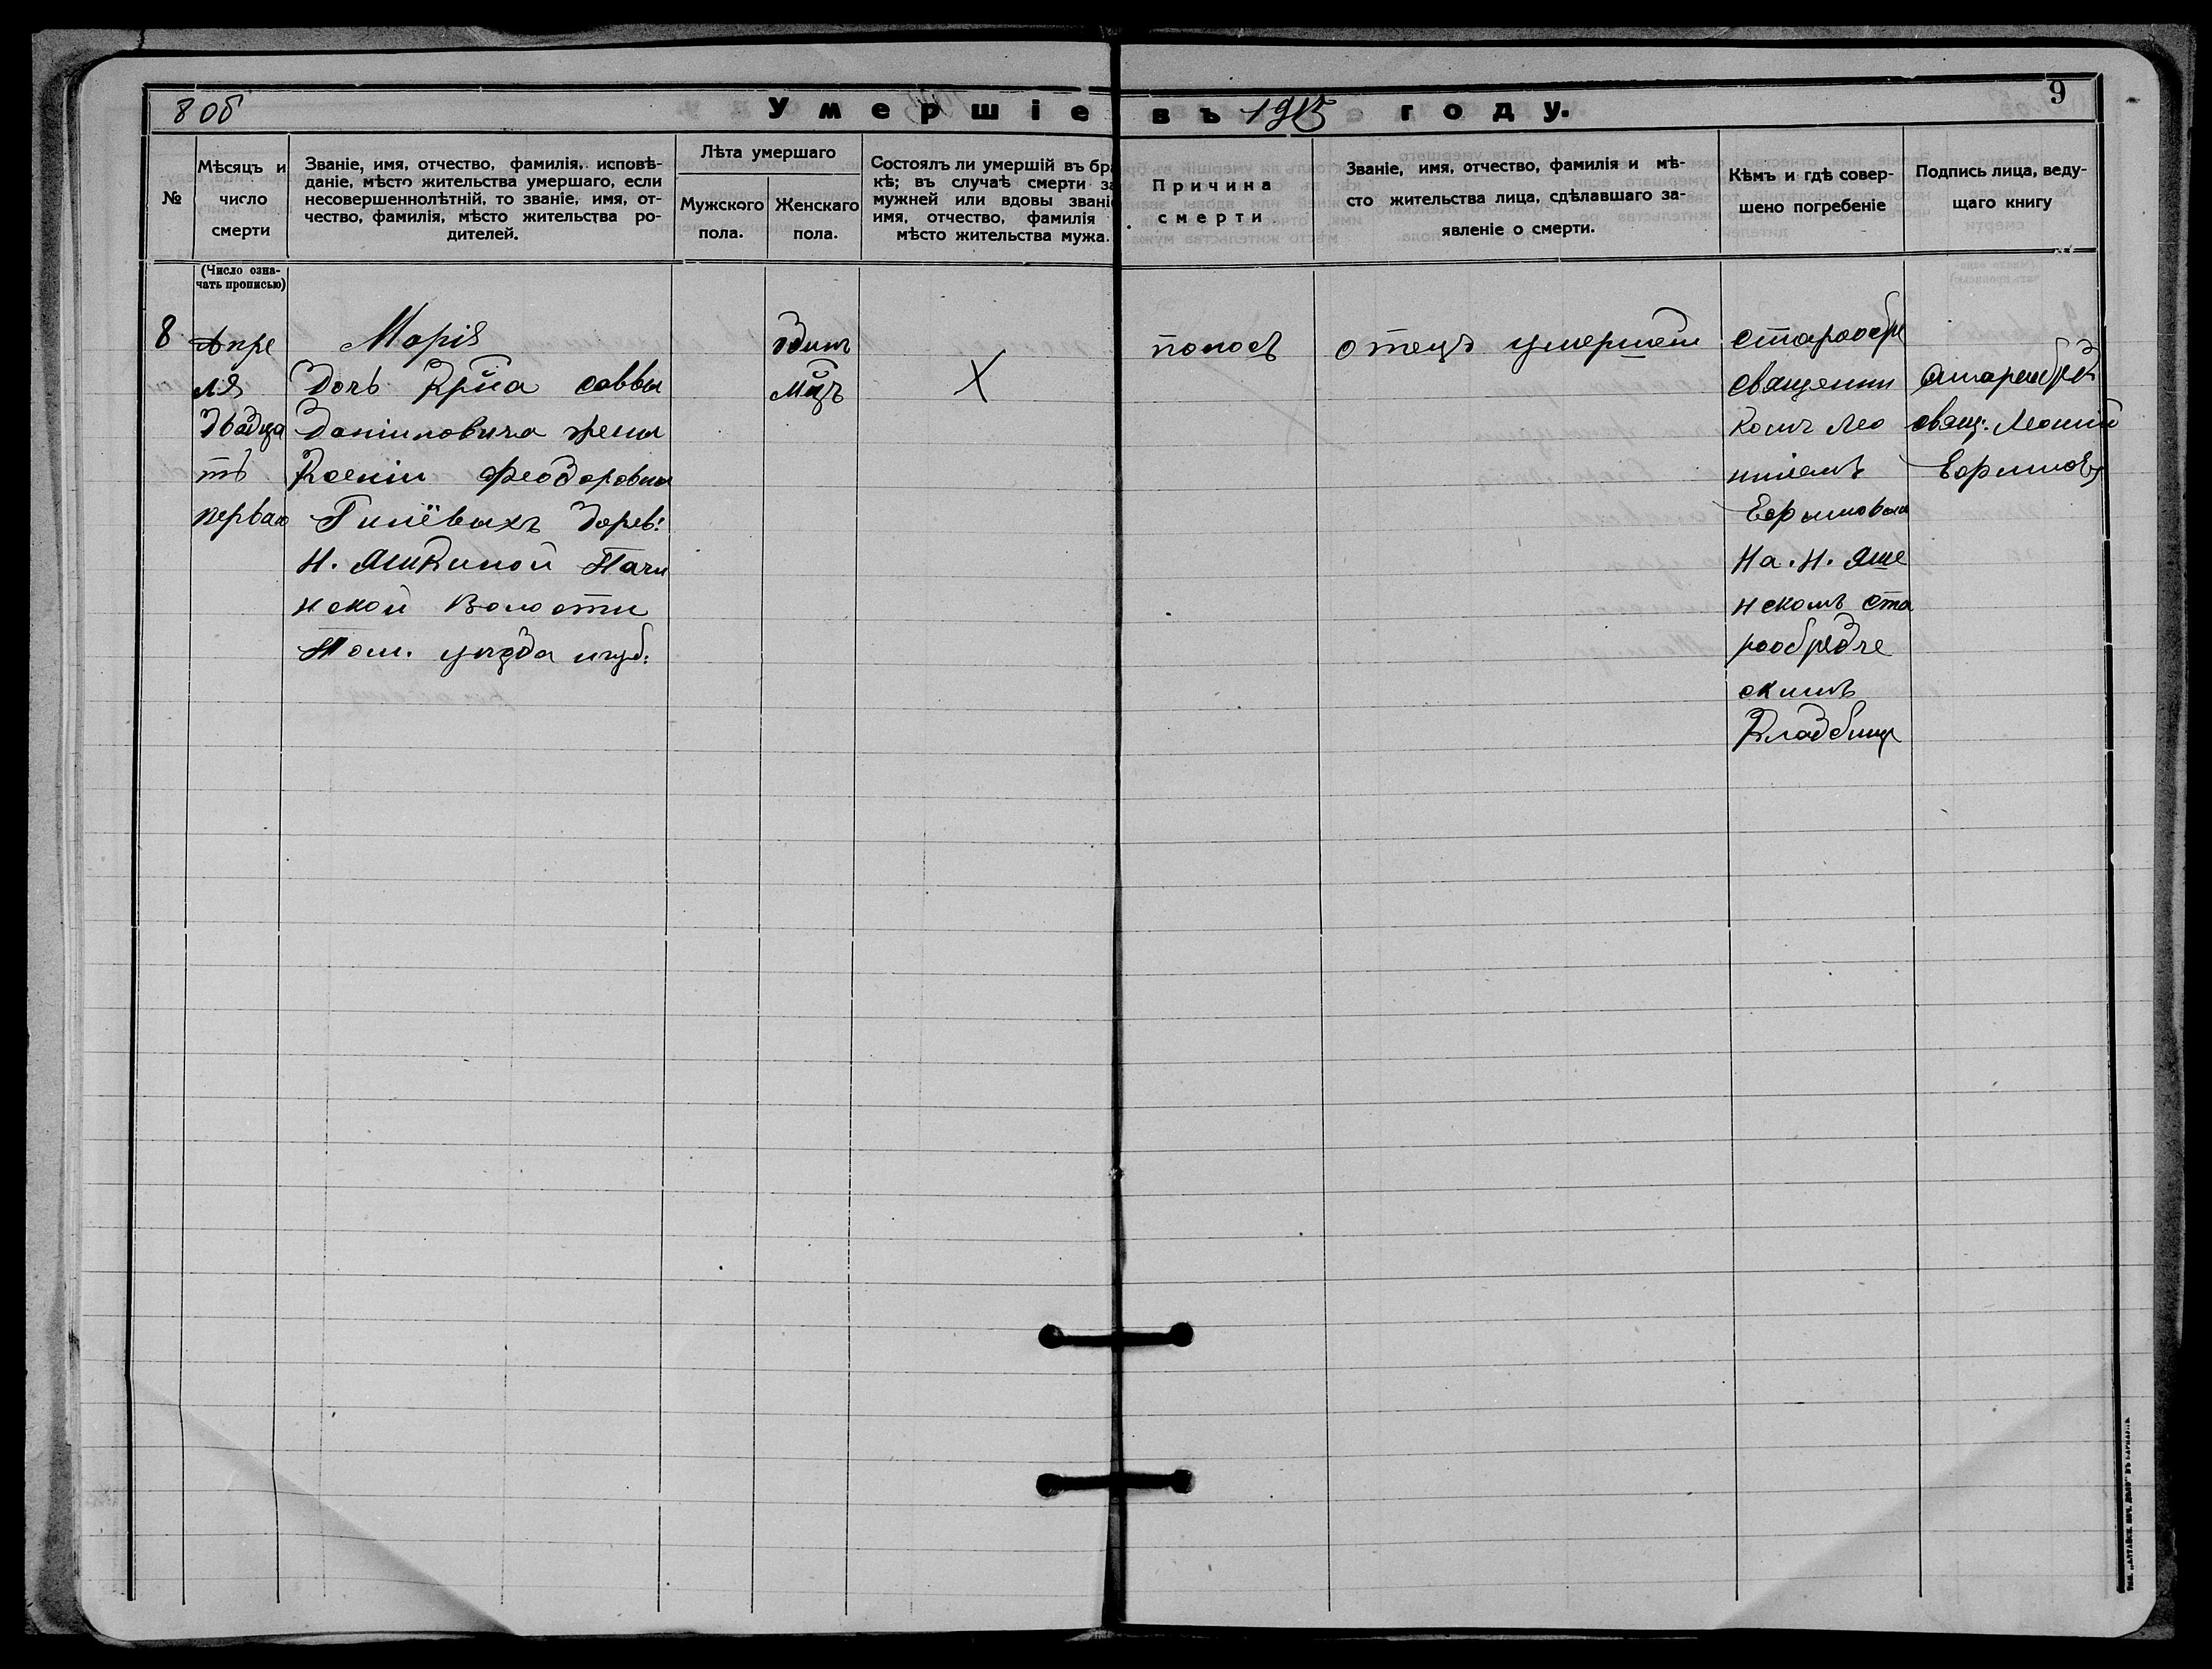 8 об
9
Умершіе въ 1915 году.
№
Мѣсяцъ и
число
смерти
Званіе, имя, отчество, фамилія, исповѣ-
даніе, мѣсто жительства умершаго, если
несовершеннолѣтній, то званіе, имя, от-
чество, фамилія, мѣсто жительства ро-
дителей.
Лѣта умершаго
Мужского
пола.
Женскаго
пола.
Состоялъ ли умершій въ бра
кѣ; въ случаѣ смерти за
мужней или вдовы званіе
имя, отчество, фамилія
мѣсто жительства мужа.
Причина
смерти
Званіе, имя, отчество, фамилія и мѣ-
сто жительства лица, сдѣлавшаго за-
явленіе о смерти.
Кѣмъ и гдѣ совер-
шено погребеніе
Подпись лица, веду-
щаго книгу
(Число озна-
чать прописью)
8
Апре
ля
двадца
ть
перваго
Марія
Дочь Крйна саввы
Даніиловича жены
Ксеніи Феодоровны
Гилёвыхъ дерев:
Н. Яшкиной Тачи
нской волости
Том. уезда игуб:
одинъ
мцъ
X
поносъ
отецъ умершей
старообре
священни
комъ Лео
нтіемъ
Ефимовым
На. Н. Яше
нскомъ ста
рообрядче
скимъ
Кладбищѣ
старообряд
свящ: Леонтій
Ефимовъ